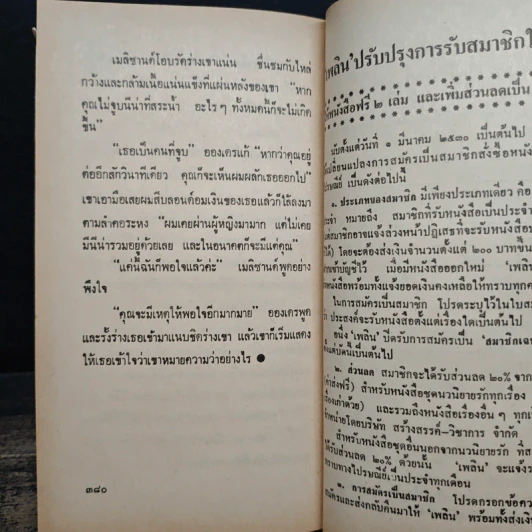 เมลิซานด์โอบรัดร่างเขาแน่น ชื่นชมกับไหล่
กว้างและกล้ามเนื้อแน่นแข็งที่แผ่นหลังของเขา "หาก
คุณไม่จูบนีน่าที่สระน้ำ อะไร ๆ ทั้งหมดนี้ก็จะไม่เกิด
ขึ้น"
"เธอเป็นคนที่จูบ" อองเดรแก้ "หากว่าคุณอยู่
ต่ออีกสักวินาทีเดียว คุณก็จะเห็นผมผลักเธอออกไป"
เขาเอามือเสยผมสีบลอนด์อมเงินของเธอแล้วก็ไล้ลงมา
ตามลำคอระหง "ผมเคยผ่านผู้หญิงมามาก แต่ไม่เคย
มีนีน่ารวมอยู่ด้วยเลย และในอนาคตก็จะมีแค่คุณ"
"แค่นี้ฉันก็พอใจแล้วค่ะ" เมลิซานด์พูดอย่าง
พึงใจ
"คุณจะมีเหตุให้พอใจอีกมากมาย" อองเดรพูด
และรั้งร่างเธอเข้ามาแนบชิดร่างเขา แล้วเขาก็เริ่มแสดง
ให้เธอเข้าใจว่าเขาหมายความว่าอย่างไร ●
๓๘๐
'เพลิน' ปรับปรุงการรับสมาชิก
หนังสือฟรี ๒ เล่ม และเพิ่มส่วนลดเป็น
นับตั้งแต่วันที่ ๑ มีนาคม ๒๕๓๐ เป็นต้นไป
เปลี่ยนแปลงการสมัครเป็นสมาชิกสั่งซื้อหนัง
เป็นดังต่อไปนี้
๑. ประเภทของสมาชิก มีเพียงประเภทเดียว คือ
ประจำ หมายถึง สมาชิกที่รับหนังสือเป็นประจำ
แต่สมาชิกอาจแจ้งล่วงหน้าปฏิเสธที่จะรับหนังสือ
ได้) โดยจะต้องส่งเงินจำนวนตั้งแต่ ๒๐๐ บาทขึ้น
เข้าบัญชีไว้ เมื่อมีหนังสือออกใหม่ 'เพลิน'
หนังสือพร้อมทั้งแจ้งยอดเงินคงเหลือให้ทราบทุก
ในการสมัครเป็นสมาชิก โปรดระบุไว้ในใบ
ประสงค์จะรับหนังสือตั้งแต่เรื่องใดเป็นต้นไป
อนึ่ง 'เพลิน' ปิดรับการสมัครเป็น 'สมาชิก
เป็นต้นไป
๒. ส่วนลด สมาชิกจะได้รับส่วนลด ๒๐% จาก
ค่าส่งฟรี) สำหรับหนังสือชุดนวนิยายรักทุกเรื่อง
เรื่องเก่าด้วย) และรวมถึงหนังสือเรื่องอื่น ๆ
จำหน่ายโดยบริษัท สร้างสรรค์-วิชาการ จำกัด
สำหรับหนังสือชุดอื่นนอกจากนวนิยายรัก
ได้รับส่วนลด ๒๐% ด้วยนั้น 'เพลิน' จะแจ้ง
ทราบทางไปรษณีย์เป็นประจำทุกเดือน
๓. การสมัครเป็นสมาชิก โปรดกรอกข้อความ
สมัครและส่งกลับคืนมาให้ 'เพลิน' พร้อมทั้งส่งเงิน